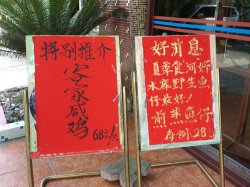 特别推介
客家咸鸡
68元/
好消息
夏季食河鲜
水库野生鱼
仔最好!
煎焗鱼仔
每例28